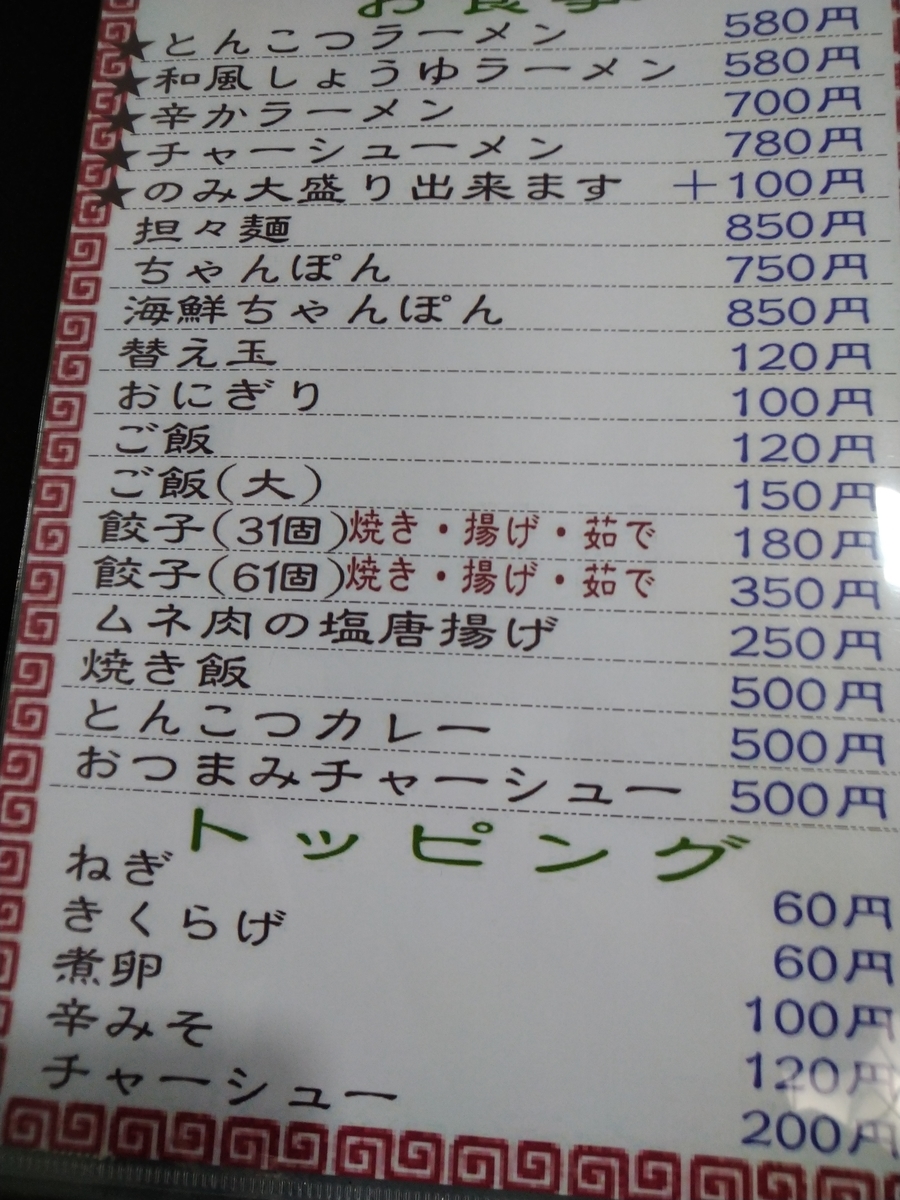 お食事
★とんこつラーメン 580円
★和風しょうゆラーメン 580円
★辛かラーメン 700円
★チャーシューメン 780円
★のみ大盛り出来ます +100円
担々麺 850円
ちゃんぽん 750円
海鮮ちゃんぽん 850円
替え玉 120円
おにぎり 100円
ご飯 120円
ご飯(大) 150円
餃子(3個)焼き・揚げ・茹で 180円
餃子(6個)焼き・揚げ・茹で 350円
ムネ肉の塩唐揚げ 250円
焼き飯 500円
とんこつカレー 500円
おつまみチャーシュー 500円
トッピング
ねぎ 60円
きくらげ 60円
煮卵 100円
辛みそ 120円
チャーシュー 200円